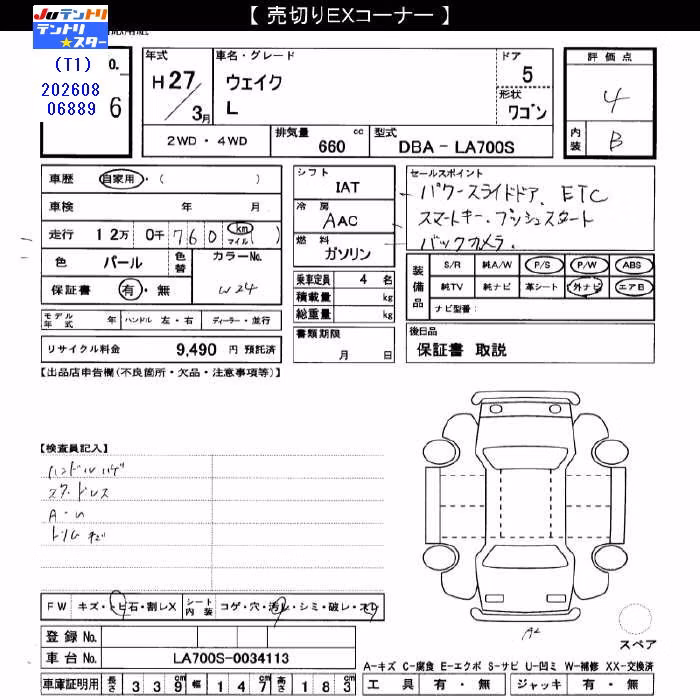 【 売切りEXコーナー 】
JUテントリ
テントリ
★スター
(T1)
202608
06889
No.
6
年式
H27/3月
車名・グレード
ウェイク
L
ドア
5
形状
ワゴン
2WD ・ 4WD
排気量 660 cc
型式 DBA - LA700S
評価点
4
内装
B
車歴 自家用・( )
車検 年 月
走行 12万 0千 760 km マイル ( )
色 パール
色替
カラーNo.
W24
保証書 有・無
モデル年式 年
ハンドル 左・右
ディーラー・並行
リサイクル料金 9,490 円 預託済
シフト
IAT
冷房
AAC
燃料
ガソリン
乗車定員 4 名
積載量 kg
総重量 kg
書類期限
月 日
セールスポイント
パワースライドドア、ETC
スマートキー、プッシュスタート
バックカメラ、
装備品
S/R 純A/W P/S P/W ABS
純TV 純ナビ 革シート 外ナビ エアB
ナビ型番:
後日品
保証書 取説
【出品店申告欄(不良箇所・欠品・注意事項等)】
【検査員記入】
ハンドルハゲ
スタッドレス
A・U
FW キズ・トビ石・割レX
シート内装 コゲ・穴・汚レ・シミ・破レ・スレ
登録 No.
車台 No. LA700S-0034113
車庫証明用 長さ 339cm 幅 147cm 高さ 183cm
A2
スペア
A-キズ C-腐食 E-エクボ S-サビ U-凹ミ W-補修 XX-交換済
工具 有・無 ジャッキ 有・無